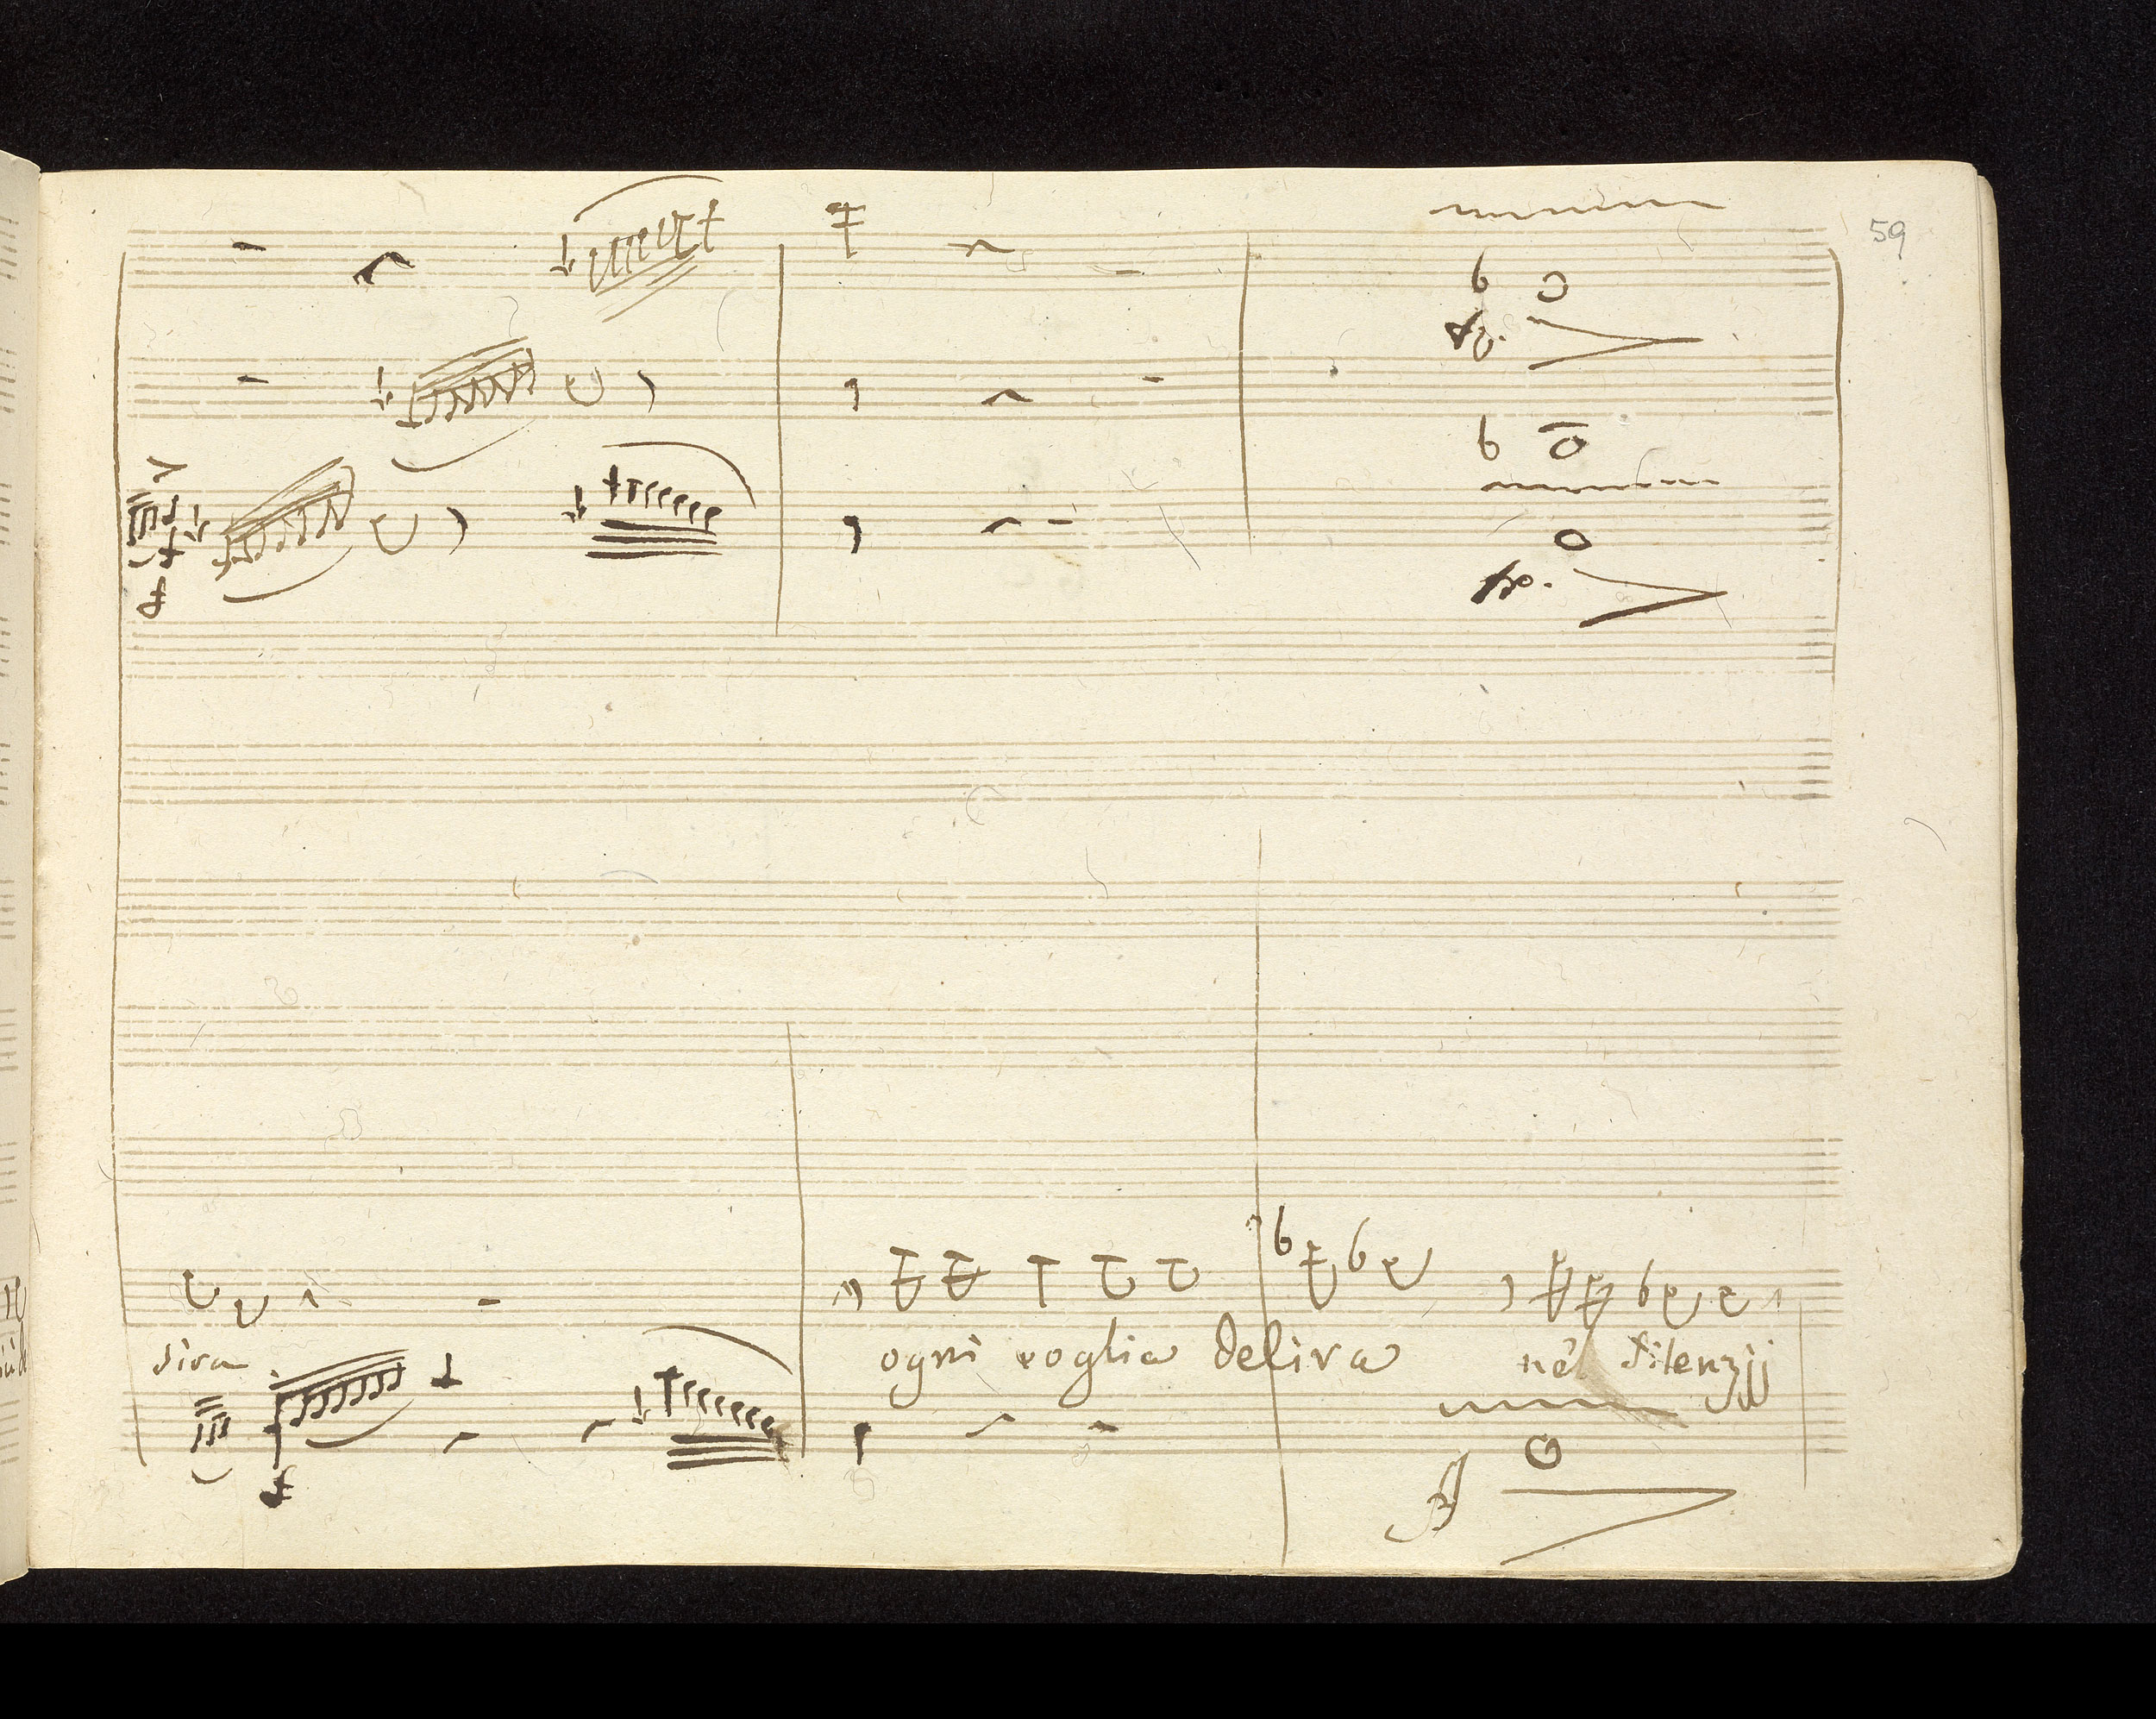 59
sira
ogni voglia delira nel silenzij